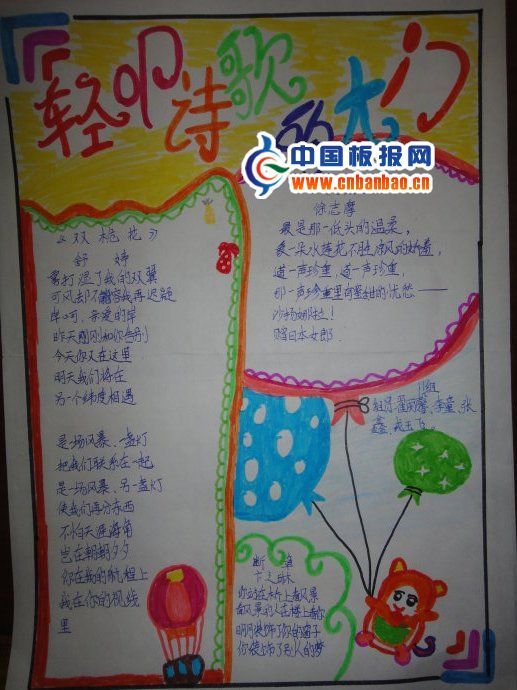 轻叩诗歌的大门
中国板报网
www.cnbanbao.cn
《双桅船》
舒婷
雾打湿了我的双翼
可风却不容我再迟疑
岸呵，亲爱的岸
昨天刚刚和你告别
今天你又在这里
明天我们将在
另一个纬度相遇
是一场风暴、一盏灯
把我们联系在一起
是一场风暴、另一盏灯
使我们再分东西
不怕天涯海角
岂在朝朝夕夕
你在我的航程上
我在你的视线
里
徐志摩
最是那一低头的温柔，
象一朵水莲花不胜凉风的娇羞，
道一声珍重，道一声珍重，
那一声珍重里有蜜甜的忧愁——
沙扬娜拉！
赠日本女郎
11组
组员：翟丽馨、李童、张
鑫、
断章
卞之琳
你站在桥上看风景
看风景的人在楼上看你
明月装饰了你的窗子
你装饰了别人的梦